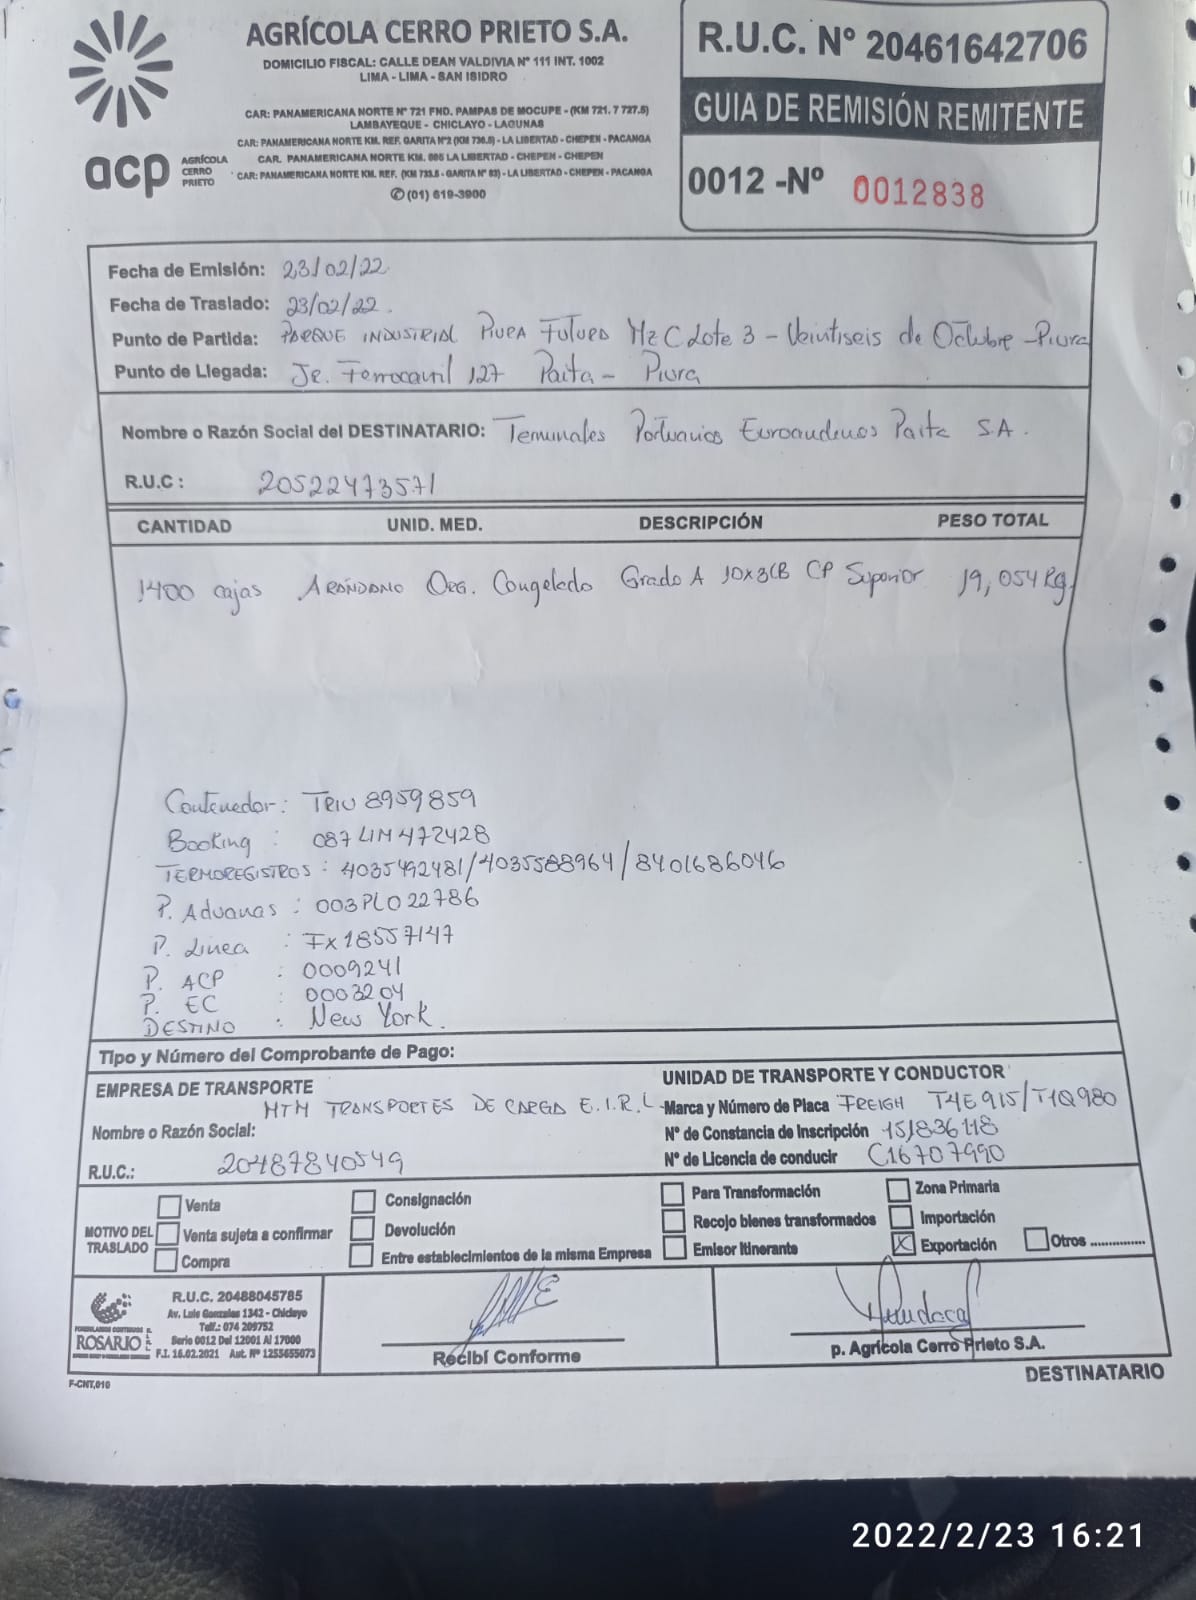 AGRÍCOLA CERRO PRIETO S.A.
DOMICILIO FISCAL: CALLE DEAN VALDIVIA Nº 111 INT. 1002
LIMA - LIMA - SAN ISIDRO
CAR: PANAMERICANA NORTE Nº 721 FND. PAMPAS DE MOCUPE - (KM 721. 7 727.5)
LAMBAYEQUE - CHICLAYO - LAGUNAS
CAR: PANAMERICANA NORTE KM. REF. GARITA Nº2 (KM 736.5) - LA LIBERTAD - CHEPEN - PACANGA
CAR. PANAMERICANA NORTE KM. 695 LA LIBERTAD - CHEPEN - CHEPEN
CAR: PANAMERICANA NORTE KM. REF. (KM 733.5 - GARITA Nº 83) - LA LIBERTAD - CHEPEN - PACANGA
(01) 619-3900
acp AGRÍCOLA
CERRO
PRIETO
R.U.C. Nº 20461642706
GUIA DE REMISIÓN REMITENTE
0012 -Nº 0012838
Fecha de Emisión: 23/02/22
Fecha de Traslado: 23/02/22.
Punto de Partida: PARQUE INDUSTRIAL PIURA FUTURA Mz C Lote 3 - Veintiseis de Octubre - Piura
Punto de Llegada: Je. Ferrocarril 127 Paita - Piura
Nombre o Razón Social del DESTINATARIO: Terminales Portuarios Euroandinos Paita S.A.
R.U.C : 20522473571
CANTIDAD UNID. MED. DESCRIPCIÓN PESO TOTAL
1400 cajas ARÁNDANO ORG. Congelado Grado A 10x3LB CP Superior 19,054Kg.
Contenedor: TRIU 8959859
Booking : 087LIM472428
TERMOREGISTROS : 4035492481/4035588964/8401686046
P. Aduanas : 003PLO22786
P. Linea : Fx18557147
P. ACP : 0009241
P. EC : 0003204
DESTINO : New York.
Tipo y Número del Comprobante de Pago:
EMPRESA DE TRANSPORTE
MTM TRANSPORTES DE CARGA E.I.R.L
Nombre o Razón Social:
R.U.C.: 20487840549
UNIDAD DE TRANSPORTE Y CONDUCTOR
Marca y Número de Placa FREIGH T4E915/T1Q980
Nº de Constancia de Inscripción 151836118
Nº de Licencia de conducir C16707990
MOTIVO DEL TRASLADO
Venta
Venta sujeta a confirmar
Compra
Consignación
Devolución
Entre establecimientos de la misma Empresa
Para Transformación
Recojo bienes transformados
Emisor Itinerante
Zona Primaria
Importación
X Exportación
Otros ..............
ROSARIO
R.U.C. 20488045785
Av. Luis Gonzales 1342 - Chiclayo
Telf.: 074 209752
Serie 0012 Del 12001 Al 17000
F.I. 16.02.2021 Aut. Nº 1255655073
Recibí Conforme
p. Agrícola Cerro Prieto S.A.
F-CNT,010
DESTINATARIO
2022/2/23 16:21